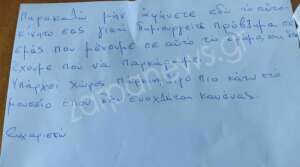 Παρακαλώ μην αφήνετε εδώ το αυτο-
κίνητό σας γιατί δημιουργείτε πρόβλημα σε
εμάς που μένουμε σε αυτό το και δεν
έχουμε που να παρκάρουμε.
Υπάρχει χώρος πάρκινγκ πιο κάτω στο
μουσείο όπου δεν ενοχλείται κανένας.
Ευχαριστώ
zarpanews.gr